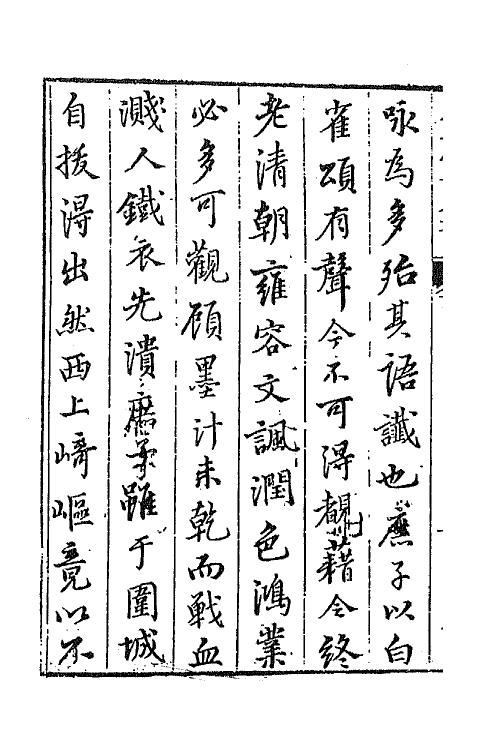 咏為多殆其語讖也麃子以白
雀頌有聲今不可得覩藉令終
老清朝雍容文諷潤色鴻業
必多可觀顧墨汁未乾而戰血
濺人鐵衣先潰麃子雖于圍城
自拔得出然西上崎嶇竟以不